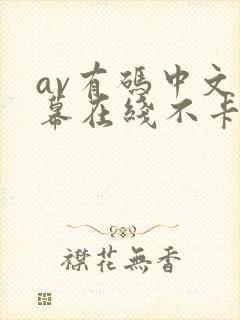 av有码中文
幕在綫不卡
襟花無香